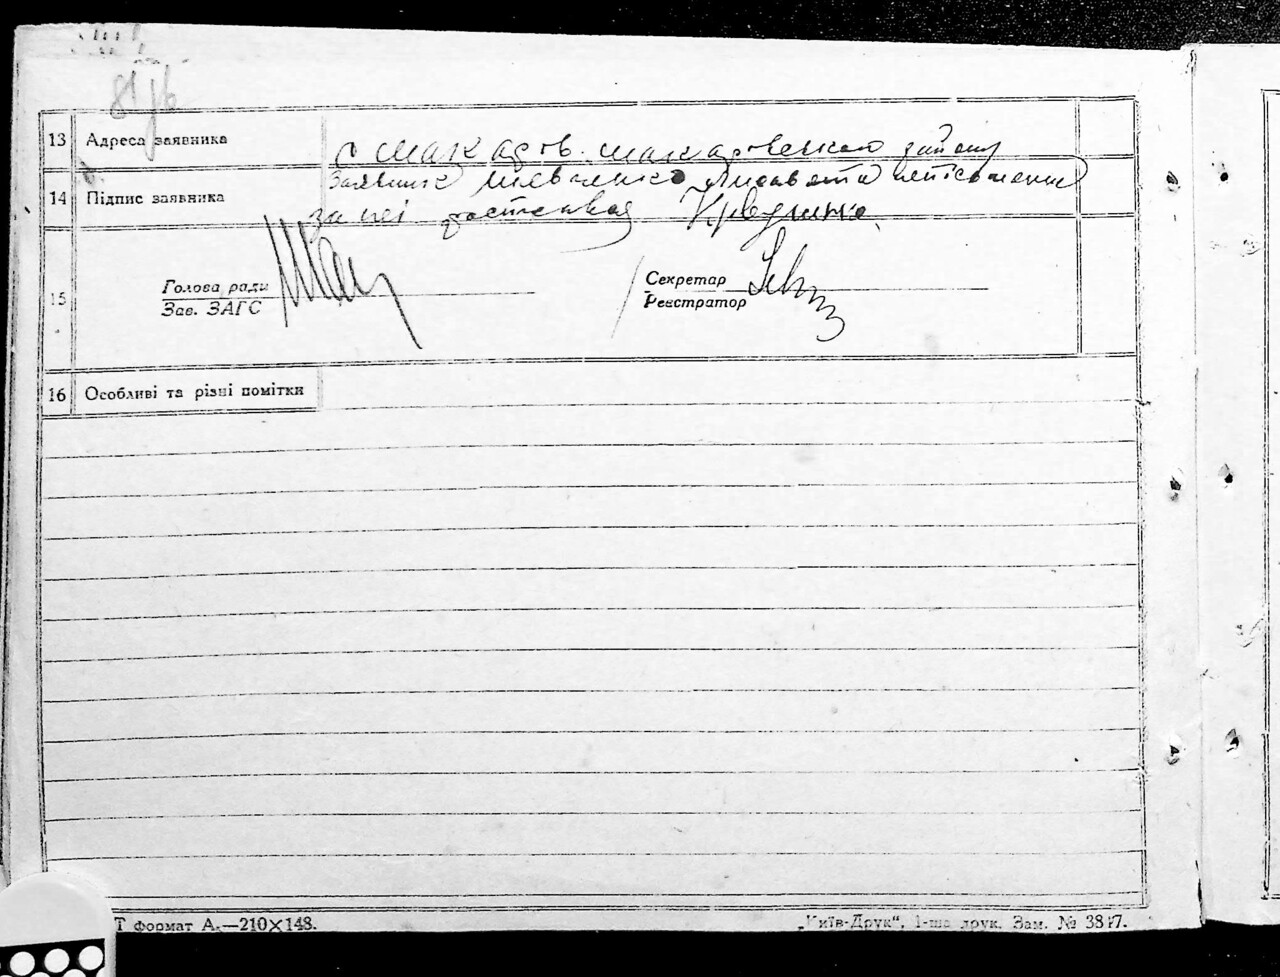 81
13 Адреса заявника с Макаров. Макаровского району
14 Підпис заявника Заявник Шевченко неписьменна
за неї
15 Голова ради Секретар
Зав. ЗАГС Реєстратор
16 Особливі та різні помітки
Т формат А₅—210×148. „Київ-Друк“, 1-ша друк. Зам. № 3847.